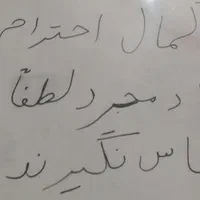 کمال احترام
د مجرد لطفاً
اس نگیرند